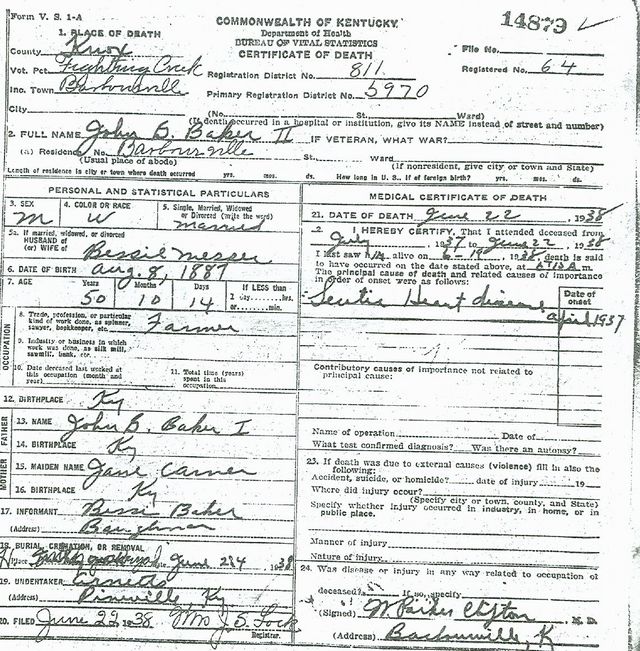 Form V. S. 1-A
COMMONWEALTH OF KENTUCKY
Department of Health
BUREAU OF VITAL STATISTICS
CERTIFICATE OF DEATH
14879
1. PLACE OF DEATH
County Knox
File No.
Vot. Pct. Fighting Creek Registration District No. 811 Registered No. 64
Inc. Town Barbourville Primary Registration District No. 5970
City (No. St. Ward)
(If death occurred in a hospital or institution, give its NAME instead of street and number)
2. FULL NAME John B. Baker II IF VETERAN, WHAT WAR?
(a) Residence No. Barbourville St. Ward
(Usual place of abode) (If nonresident, give city or town and State)
Length of residence in city or town where death occurred yrs. mos. ds. How long in U. S., if of foreign birth? yrs. mos. ds.
PERSONAL AND STATISTICAL PARTICULARS
3. SEX M
4. COLOR OR RACE W
5. Single, Married, Widowed or Divorced (write the word) Married
5a. If married, widowed, or divorced
HUSBAND of
(or) WIFE of Bessie Messer
6. DATE OF BIRTH Aug. 8, 1887
7. AGE Years Months Days If LESS than
50 10 14 1 day hrs.
or min.
OCCUPATION
8. Trade, profession, or particular
kind of work done, as spinner,
sawyer, bookkeeper, etc. Farmer
9. Industry or business in which
work was done, as silk mill,
sawmill, bank, etc.
10. Date deceased last worked at
this occupation (month and
year)
11. Total time (years)
spent in this
occupation
12. BIRTHPLACE Ky
FATHER
13. NAME John B. Baker I
14. BIRTHPLACE Ky
MOTHER
15. MAIDEN NAME Jane Carnes
16. BIRTHPLACE Ky
17. INFORMANT Bessie Baker
(Address) Baughman
18. BURIAL, CREMATION, OR REMOVAL
Place Date June 24, 1938
19. UNDERTAKER
(Address) Pineville Ky
20. FILED June 29, 1938 Mrs J. S. Lock
Registrar.
MEDICAL CERTIFICATE OF DEATH
21. DATE OF DEATH June 22, 1938
2 I HEREBY CERTIFY, That I attended deceased from
July, 1937 to June 22, 1938
I last saw him alive on 1938, death is said
to have occurred on the date stated above, at m.
The principal cause of death and related causes of importance
in order of onset were as follows:
Date of
onset
Heart disease April 1937
Contributory causes of importance not related to
principal cause:
Name of operation Date of
What test confirmed diagnosis? Was there an autopsy?
23. If death was due to external causes (violence) fill in also the
following:
Accident, suicide, or homicide? date of injury 19
Where did injury occur?
(Specify city or town, county, and State)
Specify whether injury occurred in industry, in home, or in
public place.
Manner of injury
Nature of injury
24. Was disease or injury in any way related to occupation of
deceased? If so, specify
(Signed) W Parker Clifton M. D.
(Address) Barbourville, K